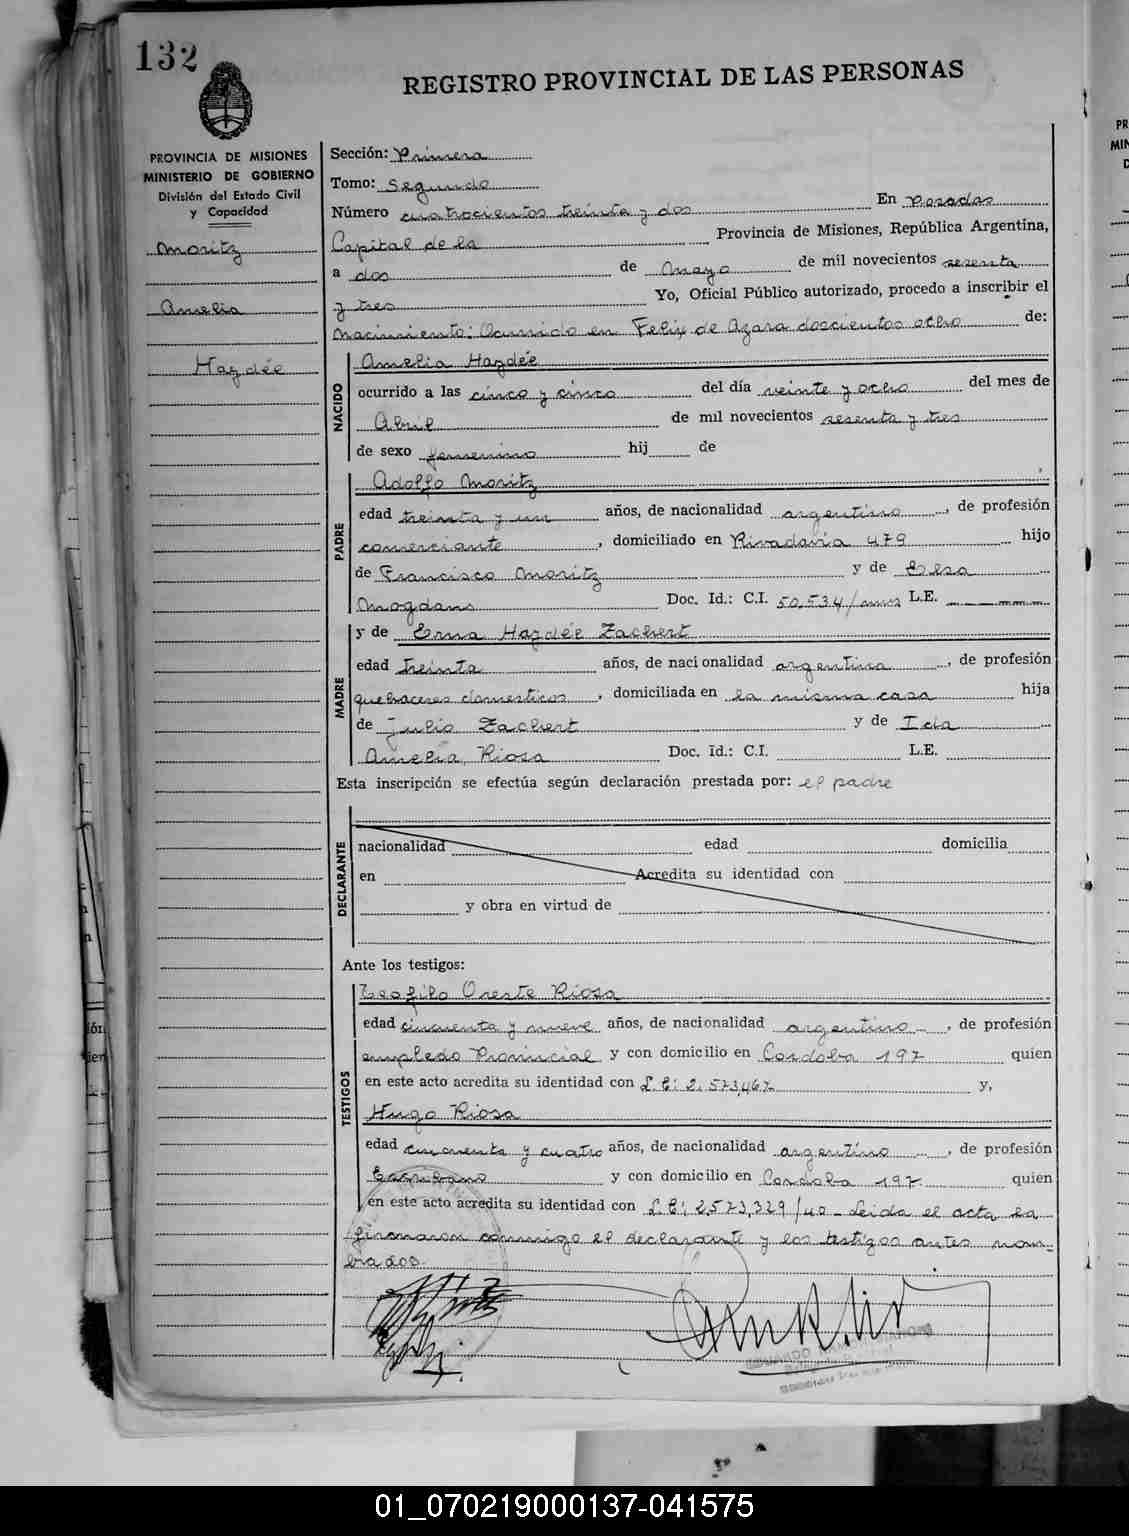 132
REGISTRO PROVINCIAL DE LAS PERSONAS
PROVINCIA DE MISIONES
MINISTERIO DE GOBIERNO
División del Estado Civil
y Capacidad
Moritz
Amelia
Haydée
Sección: Primera
Tomo: Segundo
Número cuatrocientos treinta y dos En Posadas
Capital de la Provincia de Misiones, República Argentina,
a dos de Mayo de mil novecientos sesenta
y tres Yo, Oficial Público autorizado, procedo a inscribir el
nacimiento: Ocurrido en Felix de Azara doscientos ocho de:
NACIDO
Amelia Haydée
ocurrido a las cinco y cinco del día veinte y ocho del mes de
Abril de mil novecientos sesenta y tres
de sexo femenino hij de
PADRE
Adolfo Moritz
edad treinta y un años, de nacionalidad argentino, de profesión
comerciante, domiciliado en Rivadavia 479 hijo
de Francisco Moritz y de
Mogdans Doc. Id.: C.I. 50.534/ L.E.
MADRE
y de Erna Haydée Zachert
edad treinta años, de nacionalidad argentina, de profesión
quehaceres domesticos, domiciliada en la misma casa hija
de Julio Zachert y de Ida
Amelia Riosa Doc. Id.: C.I. L.E.
Esta inscripción se efectúa según declaración prestada por: el padre
DECLARANTE
nacionalidad edad domicilia
en Acredita su identidad con
y obra en virtud de
Ante los testigos:
TESTIGOS
Teofilo Oreste Riosa
edad cincuenta y nueve años, de nacionalidad argentino, de profesión
empledo Provincial y con domicilio en Cordoba 197 quien
en este acto acredita su identidad con L.E: 2.573,467 y,
Hugo Riosa
edad cincuenta y cuatro años, de nacionalidad argentino, de profesión
Escribano y con domicilio en Cordoba 197 quien
en este acto acredita su identidad con L.E: 2,573,329/40 - Leida el acta la
firmaron conmigo el declarante y los testigos antes nom-
brados.
01_070219000137-041575